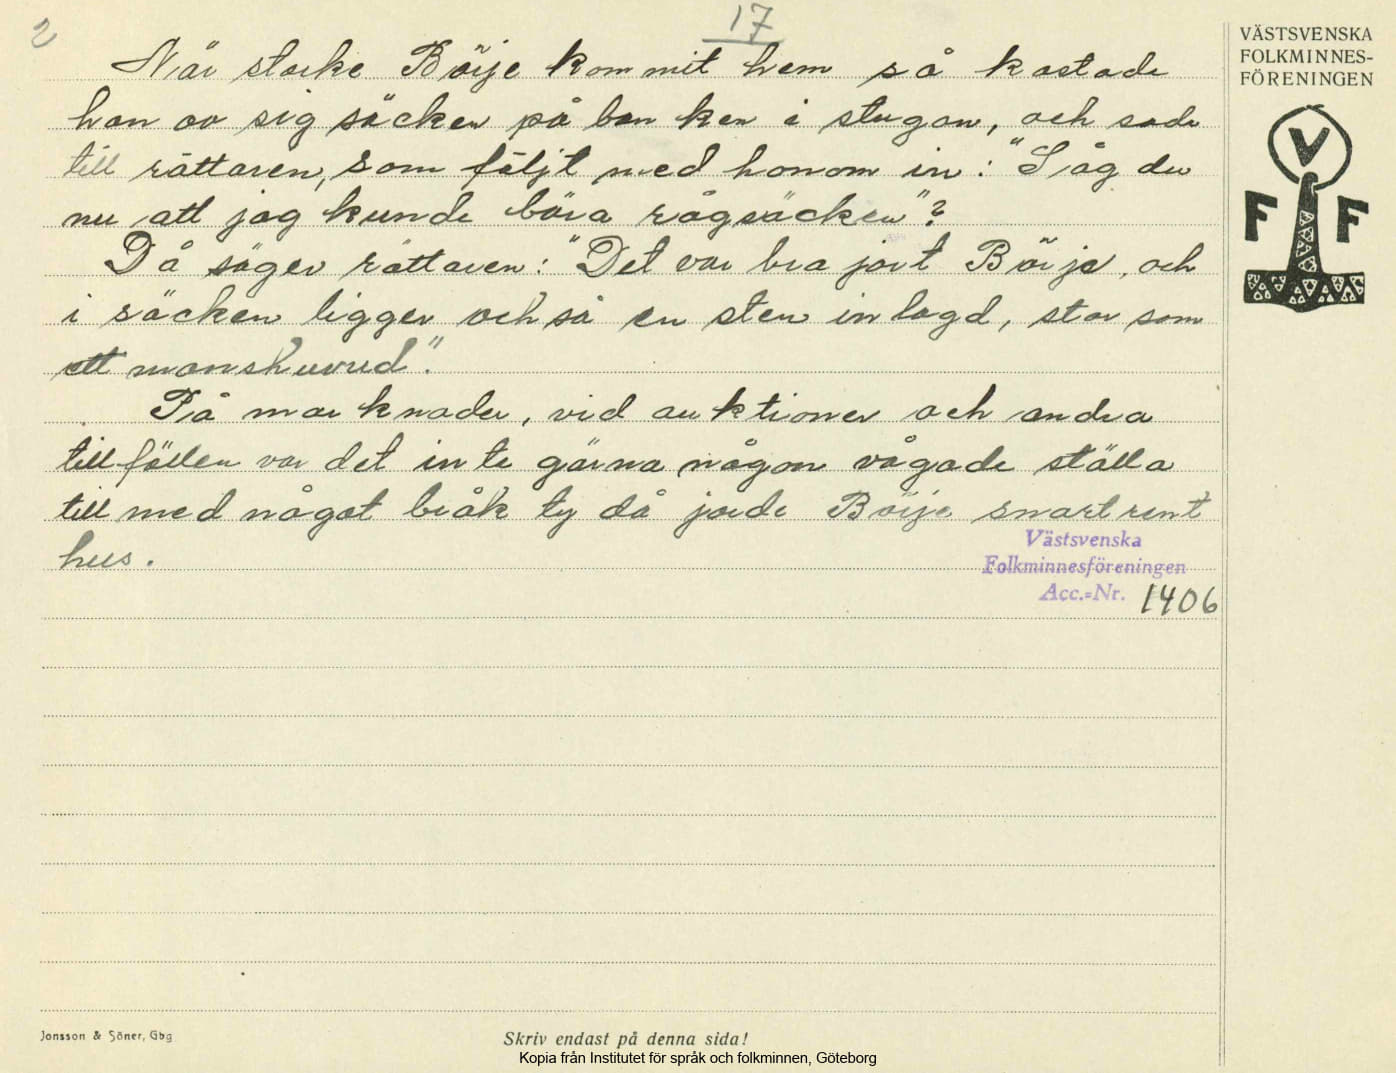 2
17
När starke Börje kommit hem så kastade
han av sig säcken på banken i stugan, och sade
till rättaren, som följt med honom in: "Såg du
nu att jag kunde bära rågsäcken"?
Då säger rättaren: "Det var bra jort Börje, och
i säcken ligger också en sten inlagd, stor som
ett manshuvud".
På marknader, vid auktioner och andra
tillfällen var det inte gärna någon vågade ställa
till med något bråk ty då jorde Börje snart rent
hus.
Västsvenska
Folkminnesföreningen
Acc.-Nr. 1406
VÄSTSVENSKA
FOLKMINNES-
FÖRENINGEN
V
F F
Jonsson & Söner, Gbg
Skriv endast på denna sida!
Kopia från Institutet för språk och folkminnen, Göteborg